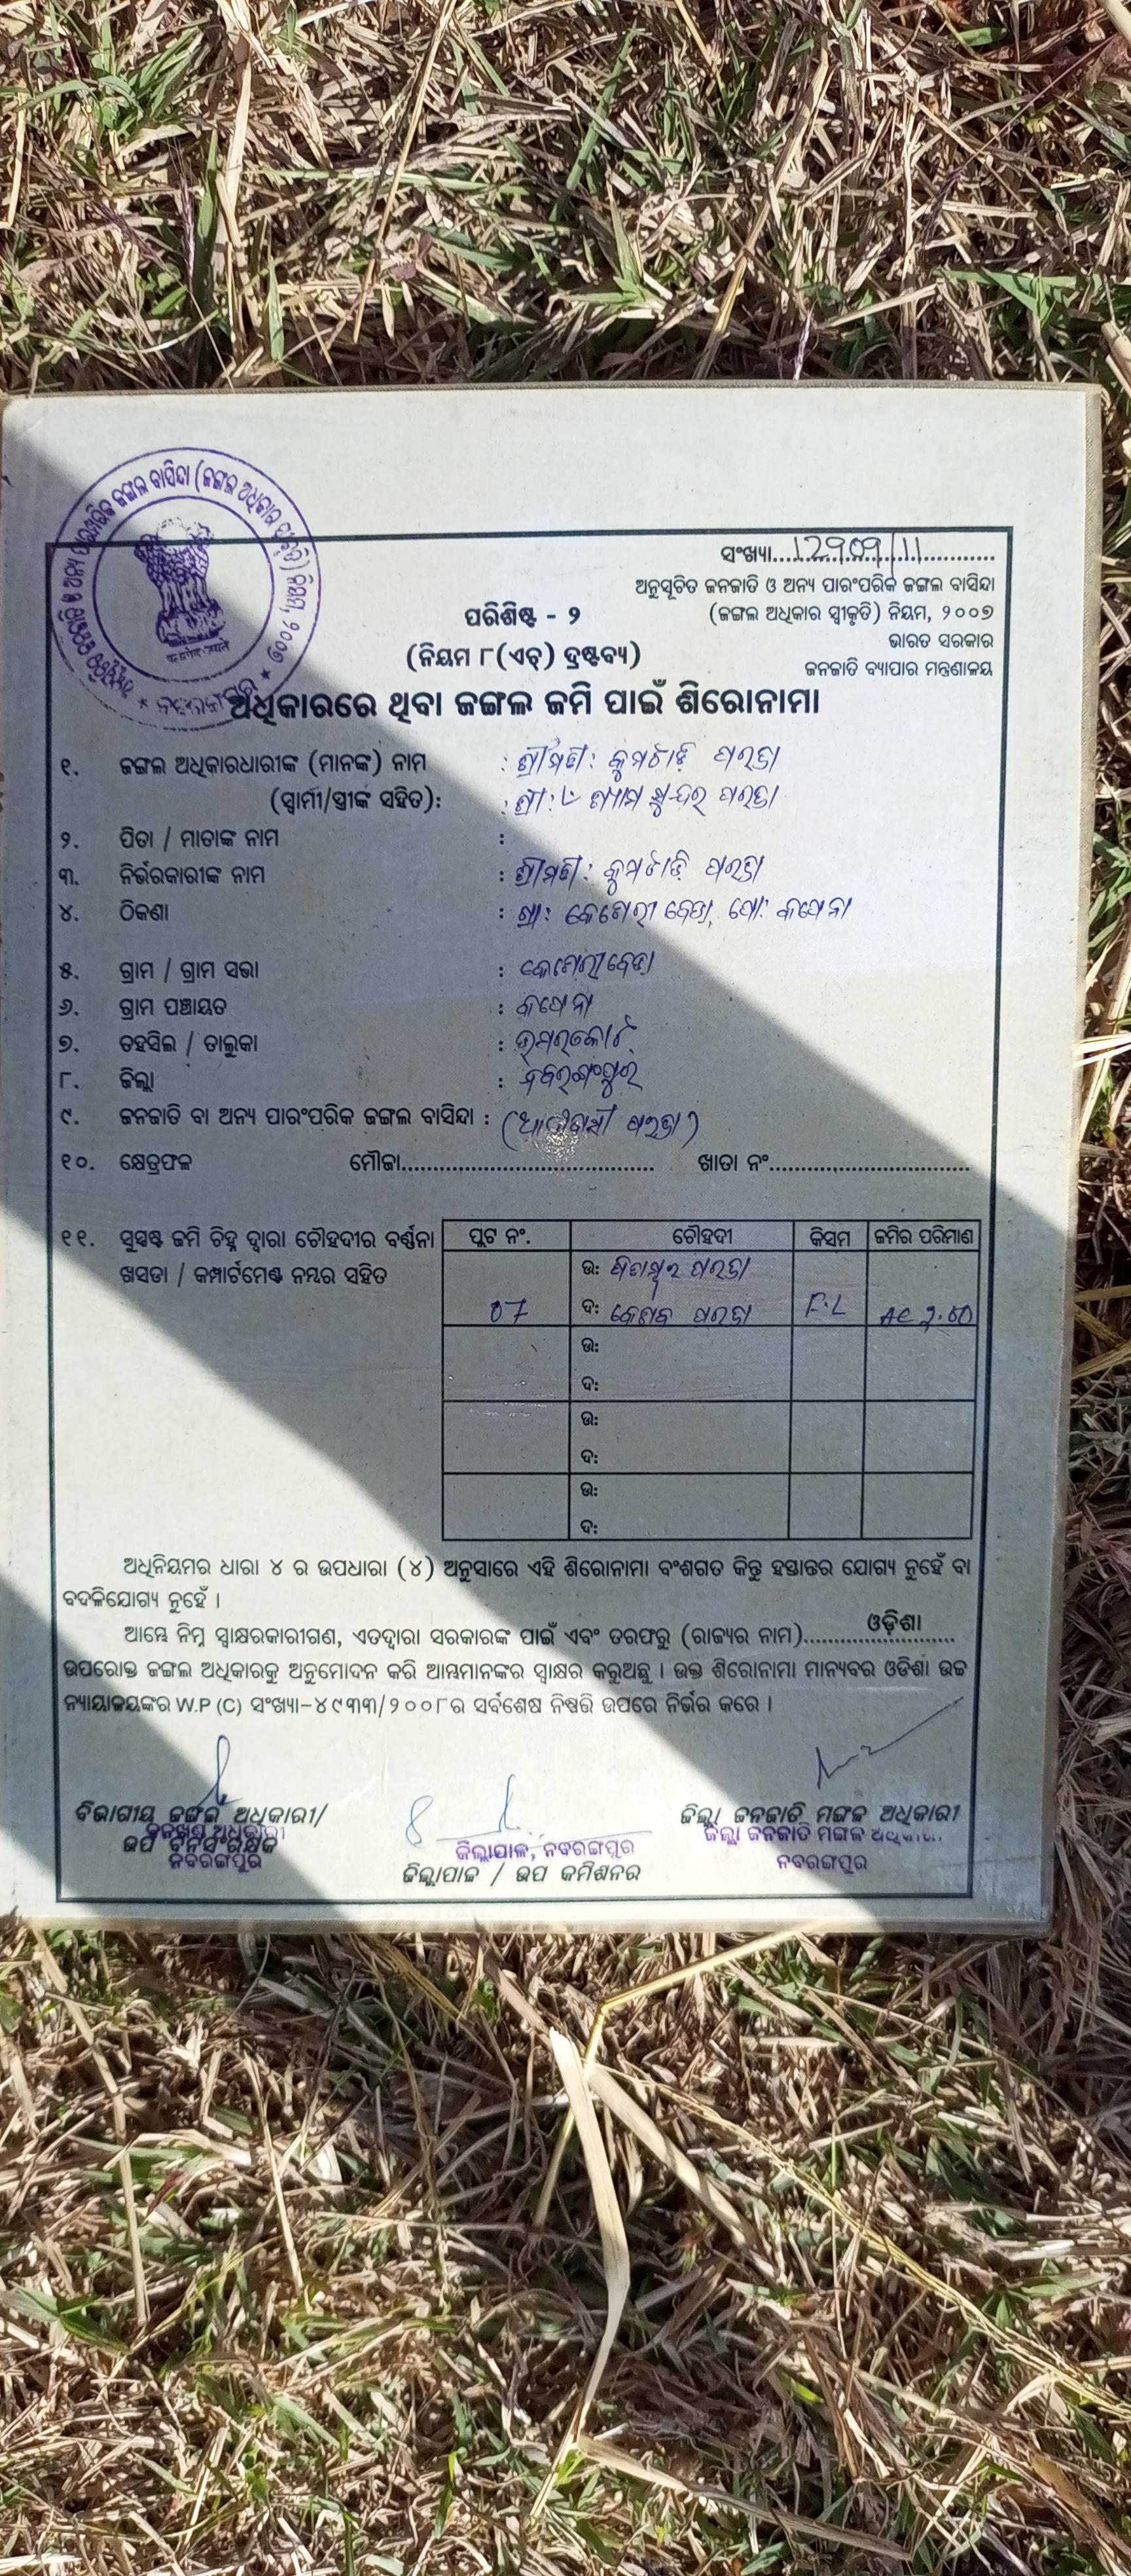 ସଂଖ୍ୟା
ଅନୁସୂଚିତ ଜନଜାତି ଓ ଅନ୍ୟ ପାରଂପରିକ ଜଙ୍ଗଲ ବାସିନ୍ଦା
(ଜଙ୍ଗଲ ଅଧିକାର ସ୍ୱୀକୃତି) ନିୟମ, ୨୦୦୭
ଭାରତ ସରକାର
ଜନଜାତି ବ୍ୟାପାର ମନ୍ତ୍ରଣାଳୟ
ପରିଶିଷ୍ଟ - ୨
(ନିୟମ ୮(ଏଚ୍) ଦ୍ରଷ୍ଟବ୍ୟ)
ଅଧିକାରରେ ଥିବା ଜଙ୍ଗଲ ଜମି ପାଇଁ ଶିରୋନାମା
୧. ଜଙ୍ଗଲ ଅଧିକାରଧାରୀଙ୍କ (ମାନଙ୍କ) ନାମ : ଶ୍ରୀମତୀ:
(ସ୍ୱାମୀ/ସ୍ତ୍ରୀଙ୍କ ସହିତ): : ଶ୍ରୀ: ଶ୍ୟାମ ସୁନ୍ଦର ପରଜା
୨. ପିତା / ମାତାଙ୍କ ନାମ :
୩. ନିର୍ଭରକାରୀଙ୍କ ନାମ : ଶ୍ରୀମତୀ:
୪. ଠିକଣା : ଗ୍ରା:
୫. ଗ୍ରାମ / ଗ୍ରାମ ସଭା :
୬. ଗ୍ରାମ ପଞ୍ଚାୟତ :
୭. ତହସିଲ / ତାଲୁକା : ଉମରକୋଟ
୮. ଜିଲ୍ଲା : ନବରଙ୍ଗପୁର
୯. ଜନଜାତି ବା ଅନ୍ୟ ପାରଂପରିକ ଜଙ୍ଗଲ ବାସିନ୍ଦା : (ଆଦିବାସୀ ପରଜା)
୧୦. କ୍ଷେତ୍ରଫଳ ମୌଜା........ ଖାତା ନଂ........
୧୧. ସୁସ୍ପଷ୍ଟ ଜମି ଚିହ୍ନ ଦ୍ୱାରା ଚୌହଦୀର ବର୍ଣ୍ଣନା ପ୍ଲଟ ନଂ. ଚୌହଦୀ କିସମ ଜମିର ପରିମାଣ
ଖସଡା / କମ୍ପାର୍ଟମେଣ୍ଟ ନମ୍ବର ସହିତ ଉ: ପରଜା
07 ଦ: କେଶବ ପରଜା F.L
ଉ:
ଦ:
ଉ:
ଦ:
ଉ:
ଦ:
ଅଧିନିୟମର ଧାରା ୪ ର ଉପଧାରା (୪) ଅନୁସାରେ ଏହି ଶିରୋନାମା ବଂଶଗତ କିନ୍ତୁ ହସ୍ତାନ୍ତର ଯୋଗ୍ୟ ନୁହେଁ ବା
ବଦଳିଯୋଗ୍ୟ ନୁହେଁ ।
ଆମ୍ଭେ ନିମ୍ନ ସ୍ୱାକ୍ଷରକାରୀଗଣ, ଏତଦ୍ୱାରା ସରକାରଙ୍କ ପାଇଁ ଏବଂ ତରଫରୁ (ରାଜ୍ୟର ନାମ)........ଓଡ଼ିଶା........
ଉପରୋକ୍ତ ଜଙ୍ଗଲ ଅଧିକାରକୁ ଅନୁମୋଦନ କରି ଆମ୍ଭମାନଙ୍କର ସ୍ୱାକ୍ଷର କରୁଅଛୁ । ଉକ୍ତ ଶିରୋନାମା ମାନ୍ୟବର ଓଡିଶା ଉଚ୍ଚ
ନ୍ୟାୟାଳୟଙ୍କର W.P (C) ସଂଖ୍ୟା-୪୯୩୩/୨୦୦୮ର ସର୍ବଶେଷ ନିଷ୍ପତ୍ତି ଉପରେ ନିର୍ଭର କରେ ।
ବିଭାଗୀୟ ଜଙ୍ଗଲ ଅଧିକାରୀ/
ଉପ ବନସଂରକ୍ଷକ
ନବରଙ୍ଗପୁର
ଜିଲ୍ଲାପାଳ, ନବରଙ୍ଗପୁର
ଜିଲ୍ଲାପାଳ / ଉପ କମିଶନର
ଜିଲ୍ଲା ଜନଜାତି ମଙ୍ଗଳ ଅଧିକାରୀ
ଜିଲ୍ଲା ଜନଜାତି ମଙ୍ଗଳ ଅଧିକାରୀ
ନବରଙ୍ଗପୁର